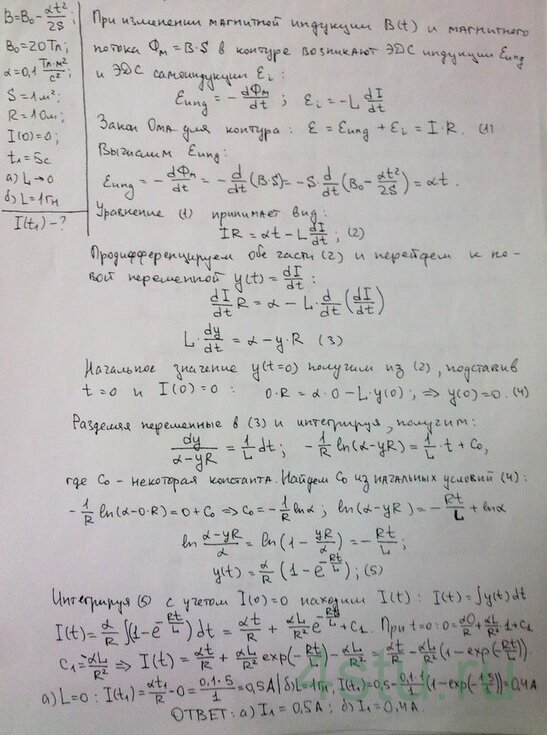 B=B₀-αt²/2S;
B₀=20Тл;
α=0,1 Тл·м²/с²;
S=1м²;
R=1Ом;
I(0)=0;
t₁=5с
а) L→0
б) L=1Гн
I(t₁)-?
При изменении магнитной индукции B(t) и магнитного
потока Φₘ=B·S в контуре возникают ЭДС индукции Eинд
и ЭДС самоиндукции Eᵢ:
Eинд = -dΦₘ/dt ; Eᵢ=-L dI/dt
Закон Ома для контура: E=Eинд+Eᵢ=I·R. (1)
Вычислим Eинд:
Eинд=-dΦₘ/dt=-d/dt(B·S)=-S·d/dt(B₀-αt²/2S)=αt.
Уравнение (1) принимает вид:
IR=αt-L dI/dt; (2)
Продифференцируем обе части (2) и перейдем к но-
вой переменной y(t)=dI/dt:
dI/dt R=α-L·d/dt(dI/dt)
L·dy/dt=α-y·R (3)
Начальное значение y(t=0) получим из (2), подставив
t=0 и I(0)=0: 0·R=α·0-L·y(0); ⇒ y(0)=0. (4)
Разделяя переменные в (3) и интегрируя, получим:
dy/(α-yR)=1/L dt; -1/R ln(α-yR)=1/L·t+C₀,
где C₀ - некоторая константа. Найдем C₀ из начальных условий (4):
-1/R ln(α-0·R)=0+C₀ ⇒ C₀=-1/R lnα; ln(α-yR)=-Rt/L+lnα
ln (α-yR)/α=ln(1-yR/α)=-Rt/L;
y(t)=α/R(1-e^(-Rt/L)); (5)
Интегрируя (5) с учетом I(0)=0 находим I(t): I(t)=∫y(t)dt
I(t)=α/R∫(1-e^(-Rt/L))dt=αt/R+αL/R²e^(-Rt/L)+C₁. При t=0: 0=α0/R+αL/R²·1+C₁
C₁=-αL/R² ⇒ I(t)=αt/R+αL/R² exp(-Rt/L)-αL/R²=αt/R-αL/R²(1-exp(-Rt/L))
а) L=0: I(t₁)=αt₁/R-0=0,1·5/1=0,5А | б) L=1Гн, I(t₁)=0,5-0,1·1/1(1-exp(-1·5/1))=0,4А
ОТВЕТ: а) I₁=0,5А; б) I₁=0,4А
4stu.ru